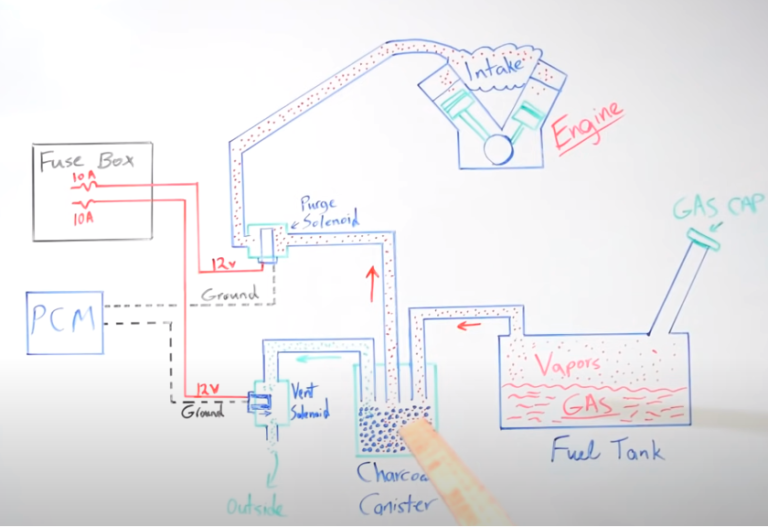 Intake
Engine
Fuse Box
10A
10A
Purge
Solenoid
GAS CAP
12v
Ground
PCM
Vapors
GAS
12V
Ground
Vent
Solenoid
Fuel Tank
Charcoa
Canister
Outside